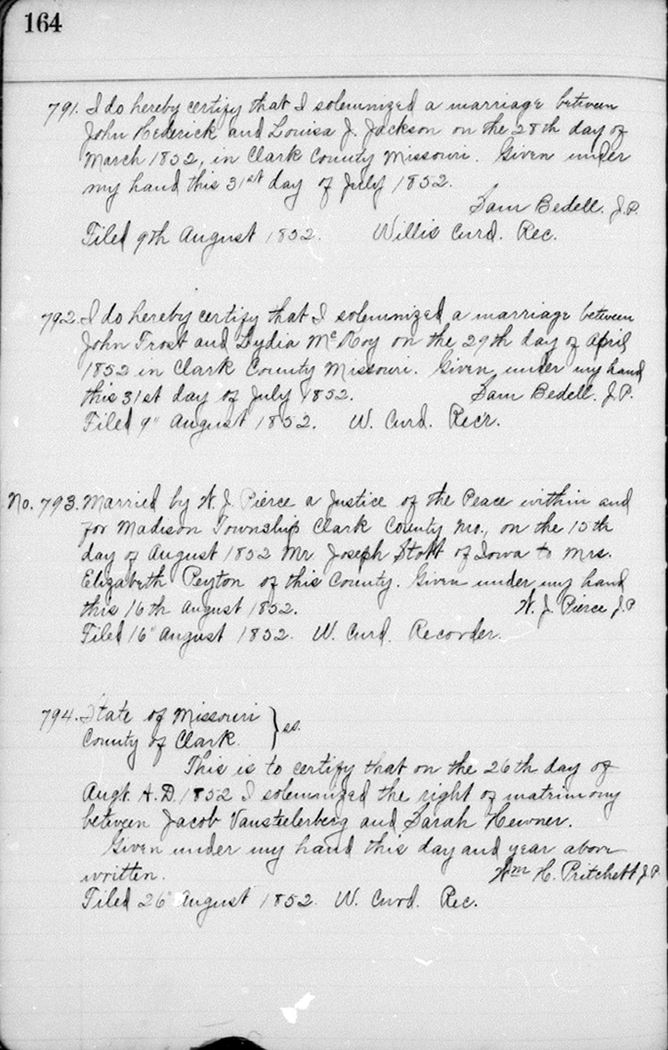 164
791. I do hereby certify that I solemnized a marriage between
John Hederick and Louisa J. Jackson on the 28th day of
March 1852, in Clark County Missouri. Given under
my hand this 31st day of July 1852.
Sam Bedell. J.P.
Filed 9th August 1852. Willis Curd. Rec.
792. I do hereby certify that I solemnized a marriage between
John Trost and Lydia McKoy on the 29th day of April
1852 in Clark County Missouri. Given under my hand
this 31st day of July 1852. Sam Bedell. J.P.
Filed 9" August 1852. W. Curd. Recr.
No. 793. Married by W. J. Pierce a Justice of the Peace within and
for Madison Township Clark County Mo., on the 15th
day of August 1852 Mr Joseph Stott of Iowa to Mrs.
Elizabeth Peyton of this County. Given under my hand
this 16th August 1852. W. J. Pierce J.P
Filed 16" August 1852. W. Curd. Recorder.
794. State of Missouri
County of Clark. } ss.
This is to certify that on the 26th day of
Augt. A.D. 1852 I solemnized the right of matrimony
between Jacob Vanstelerberg and Sarah Hewner.
Given under my hand this day and year above
written. Wm H. Pritchett J.P.
Filed 26" August 1852. W. Curd. Rec.